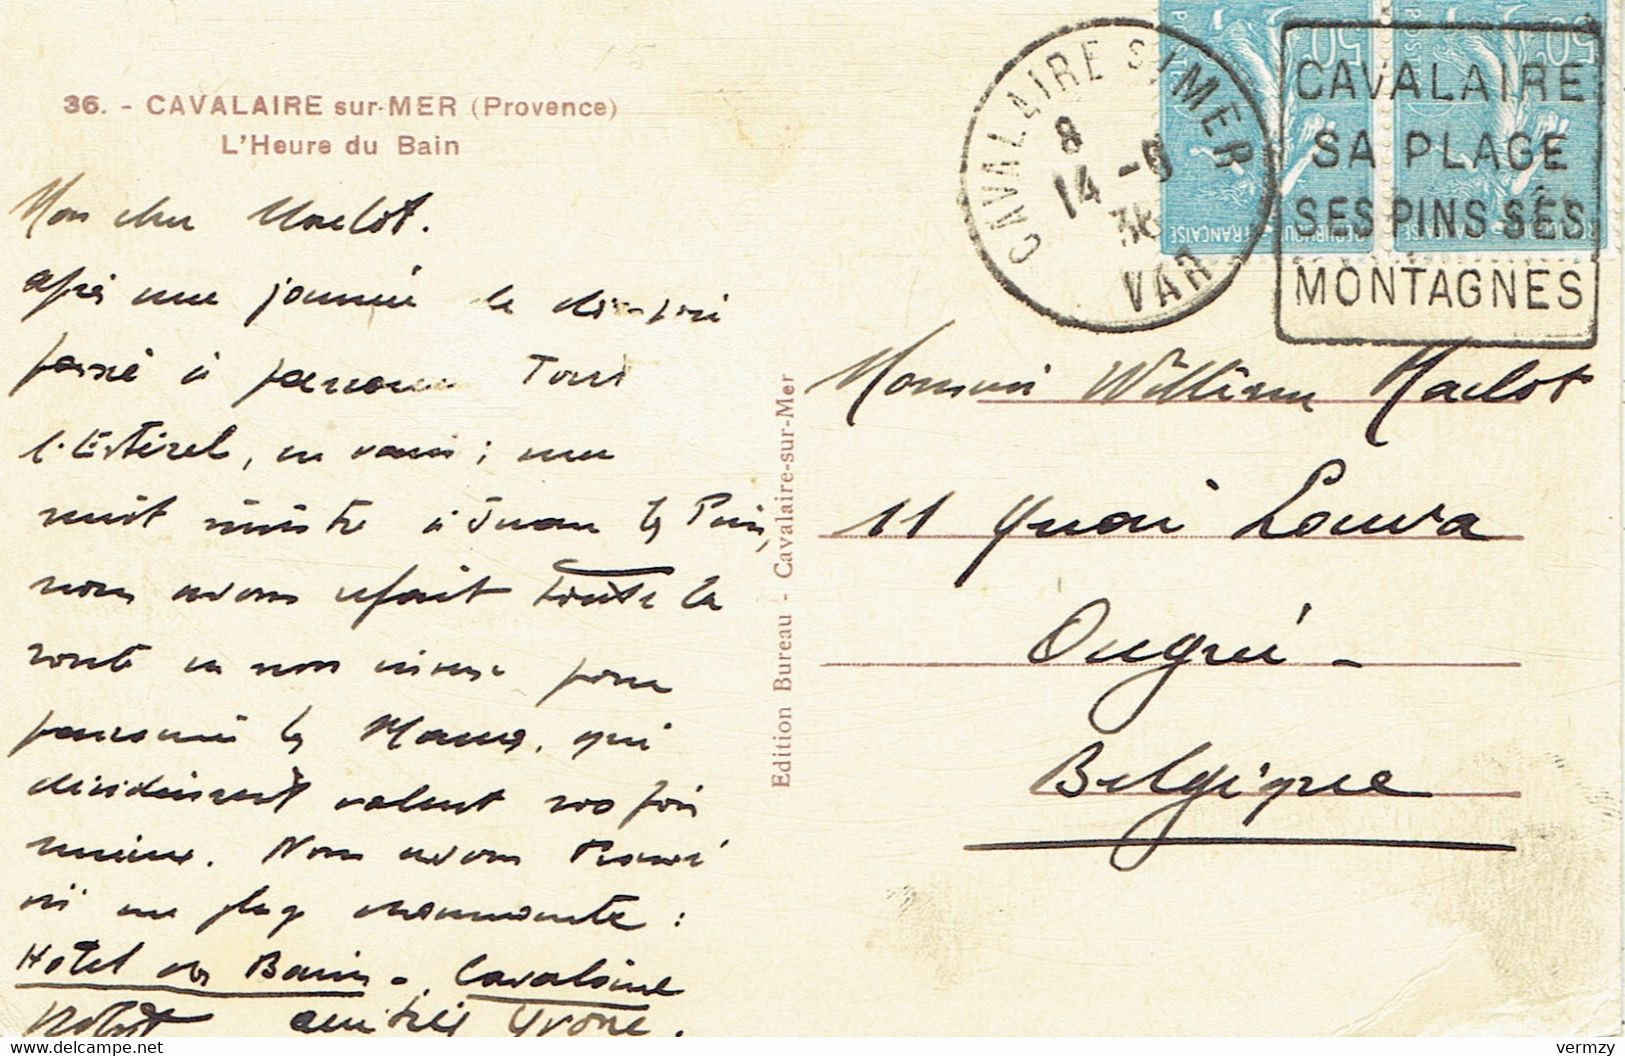 36. - CAVALAIRE sur-MER (Provence)
L'Heure du Bain
CAVALAIRE S/MER
8
14 -
36
VAR
50c
POSTES
REPUBLIQUE FRANÇAISE
50c
POSTES
REPUBLIQUE FRANÇAISE
CAVALAIRE
SA PLAGE
SES PINS SES
MONTAGNES
Mon cher Maelot.
après une journée
passé à parcourir Tout
l'Estérel, en vain ; une
nuit sinistre à Juan les Pins,
nous avons refait toute la
route en sens inverse pour
parcourir les Maures, qui
décidément valent 100 fois
mieux. Nous avons trouvé
ici une plage charmante :
Hotel des Bains - Cavalaire
Robert amitiés Yvone.
Edition Bureau - Cavalaire-sur-Mer
Monsieur William Maelot
11 Quai Louva
Ougrée -
Belgique
vermzy